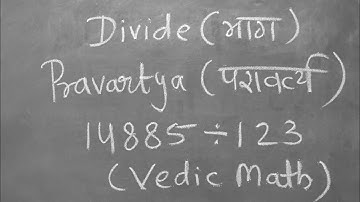 Divide (भाग)
Pravartya (परावर्त्य)
14885 ÷ 123
(Vedic Math)